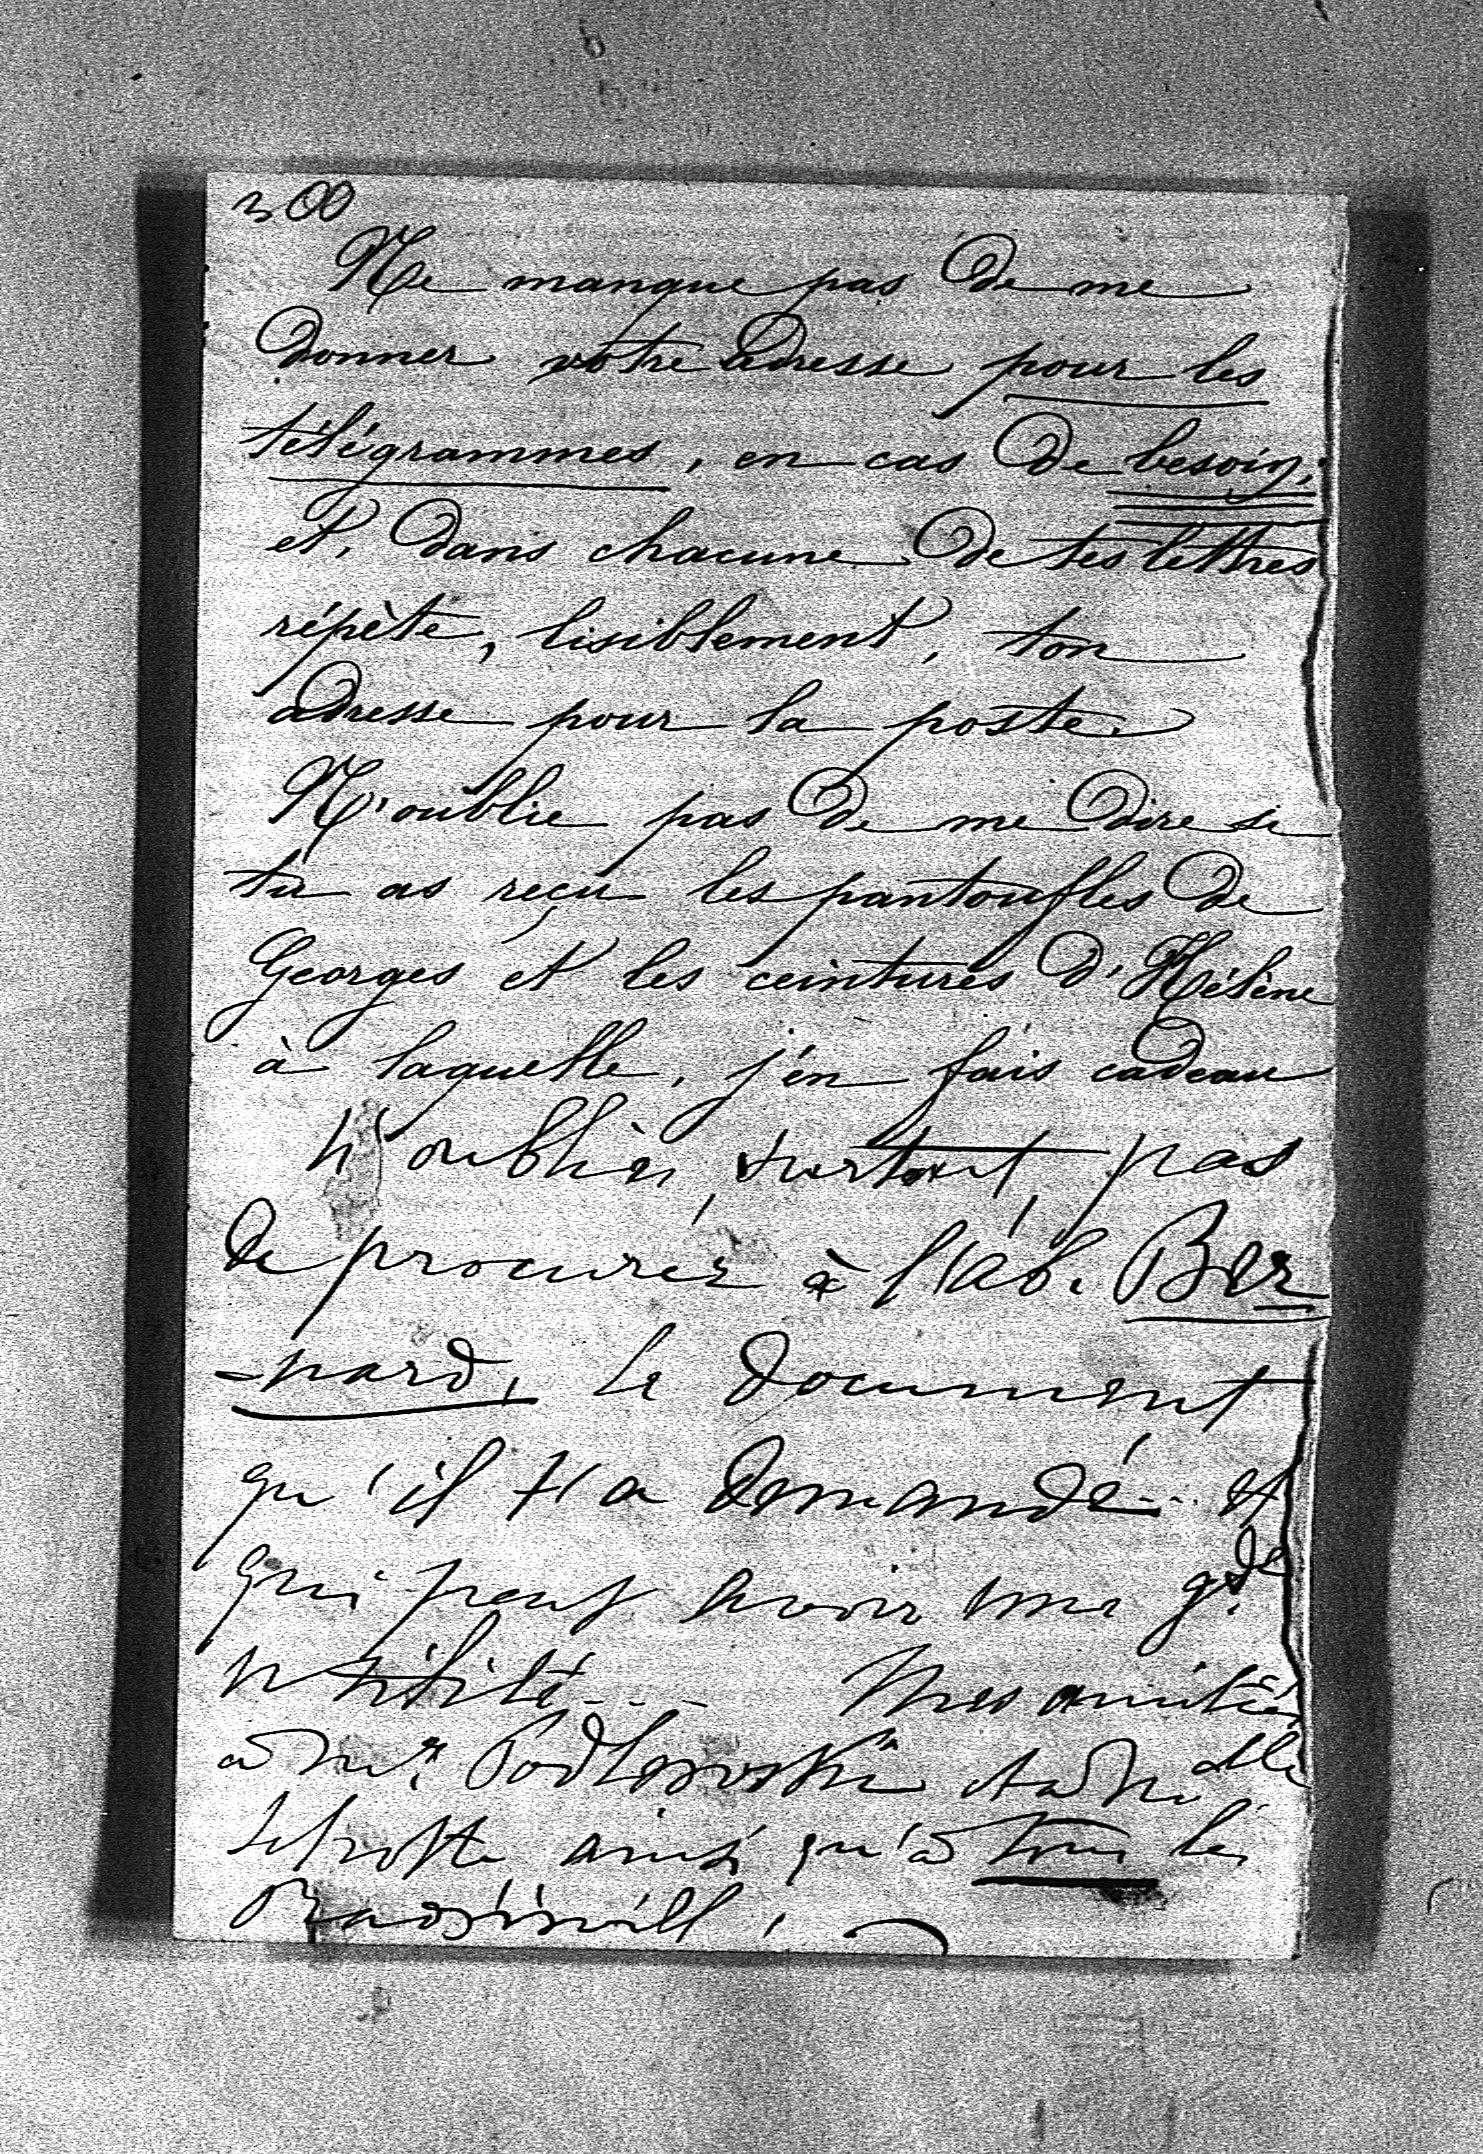 300
Ne manque pas de me
donner votre adresse pour les
télégrammes, en cas de besoin,
et, dans chacune de tes lettres
répète, lisiblement, ton
adresse pour la poste.
N'oublie pas de me dire si
tu as reçu les pantoufles de
Georges et les ceintures d'Hélène
à laquelle, j'en fais cadeau
N'oublies, surtout, pas
de procurer à l'ab. Ber
-nard, le document
qu'il t'a demandé... et
qui peut avoir une gde
utilité... Mes amitiés
à Mr. Podlewski et à Melle
ainsi qu'à tous les
Radziwill.